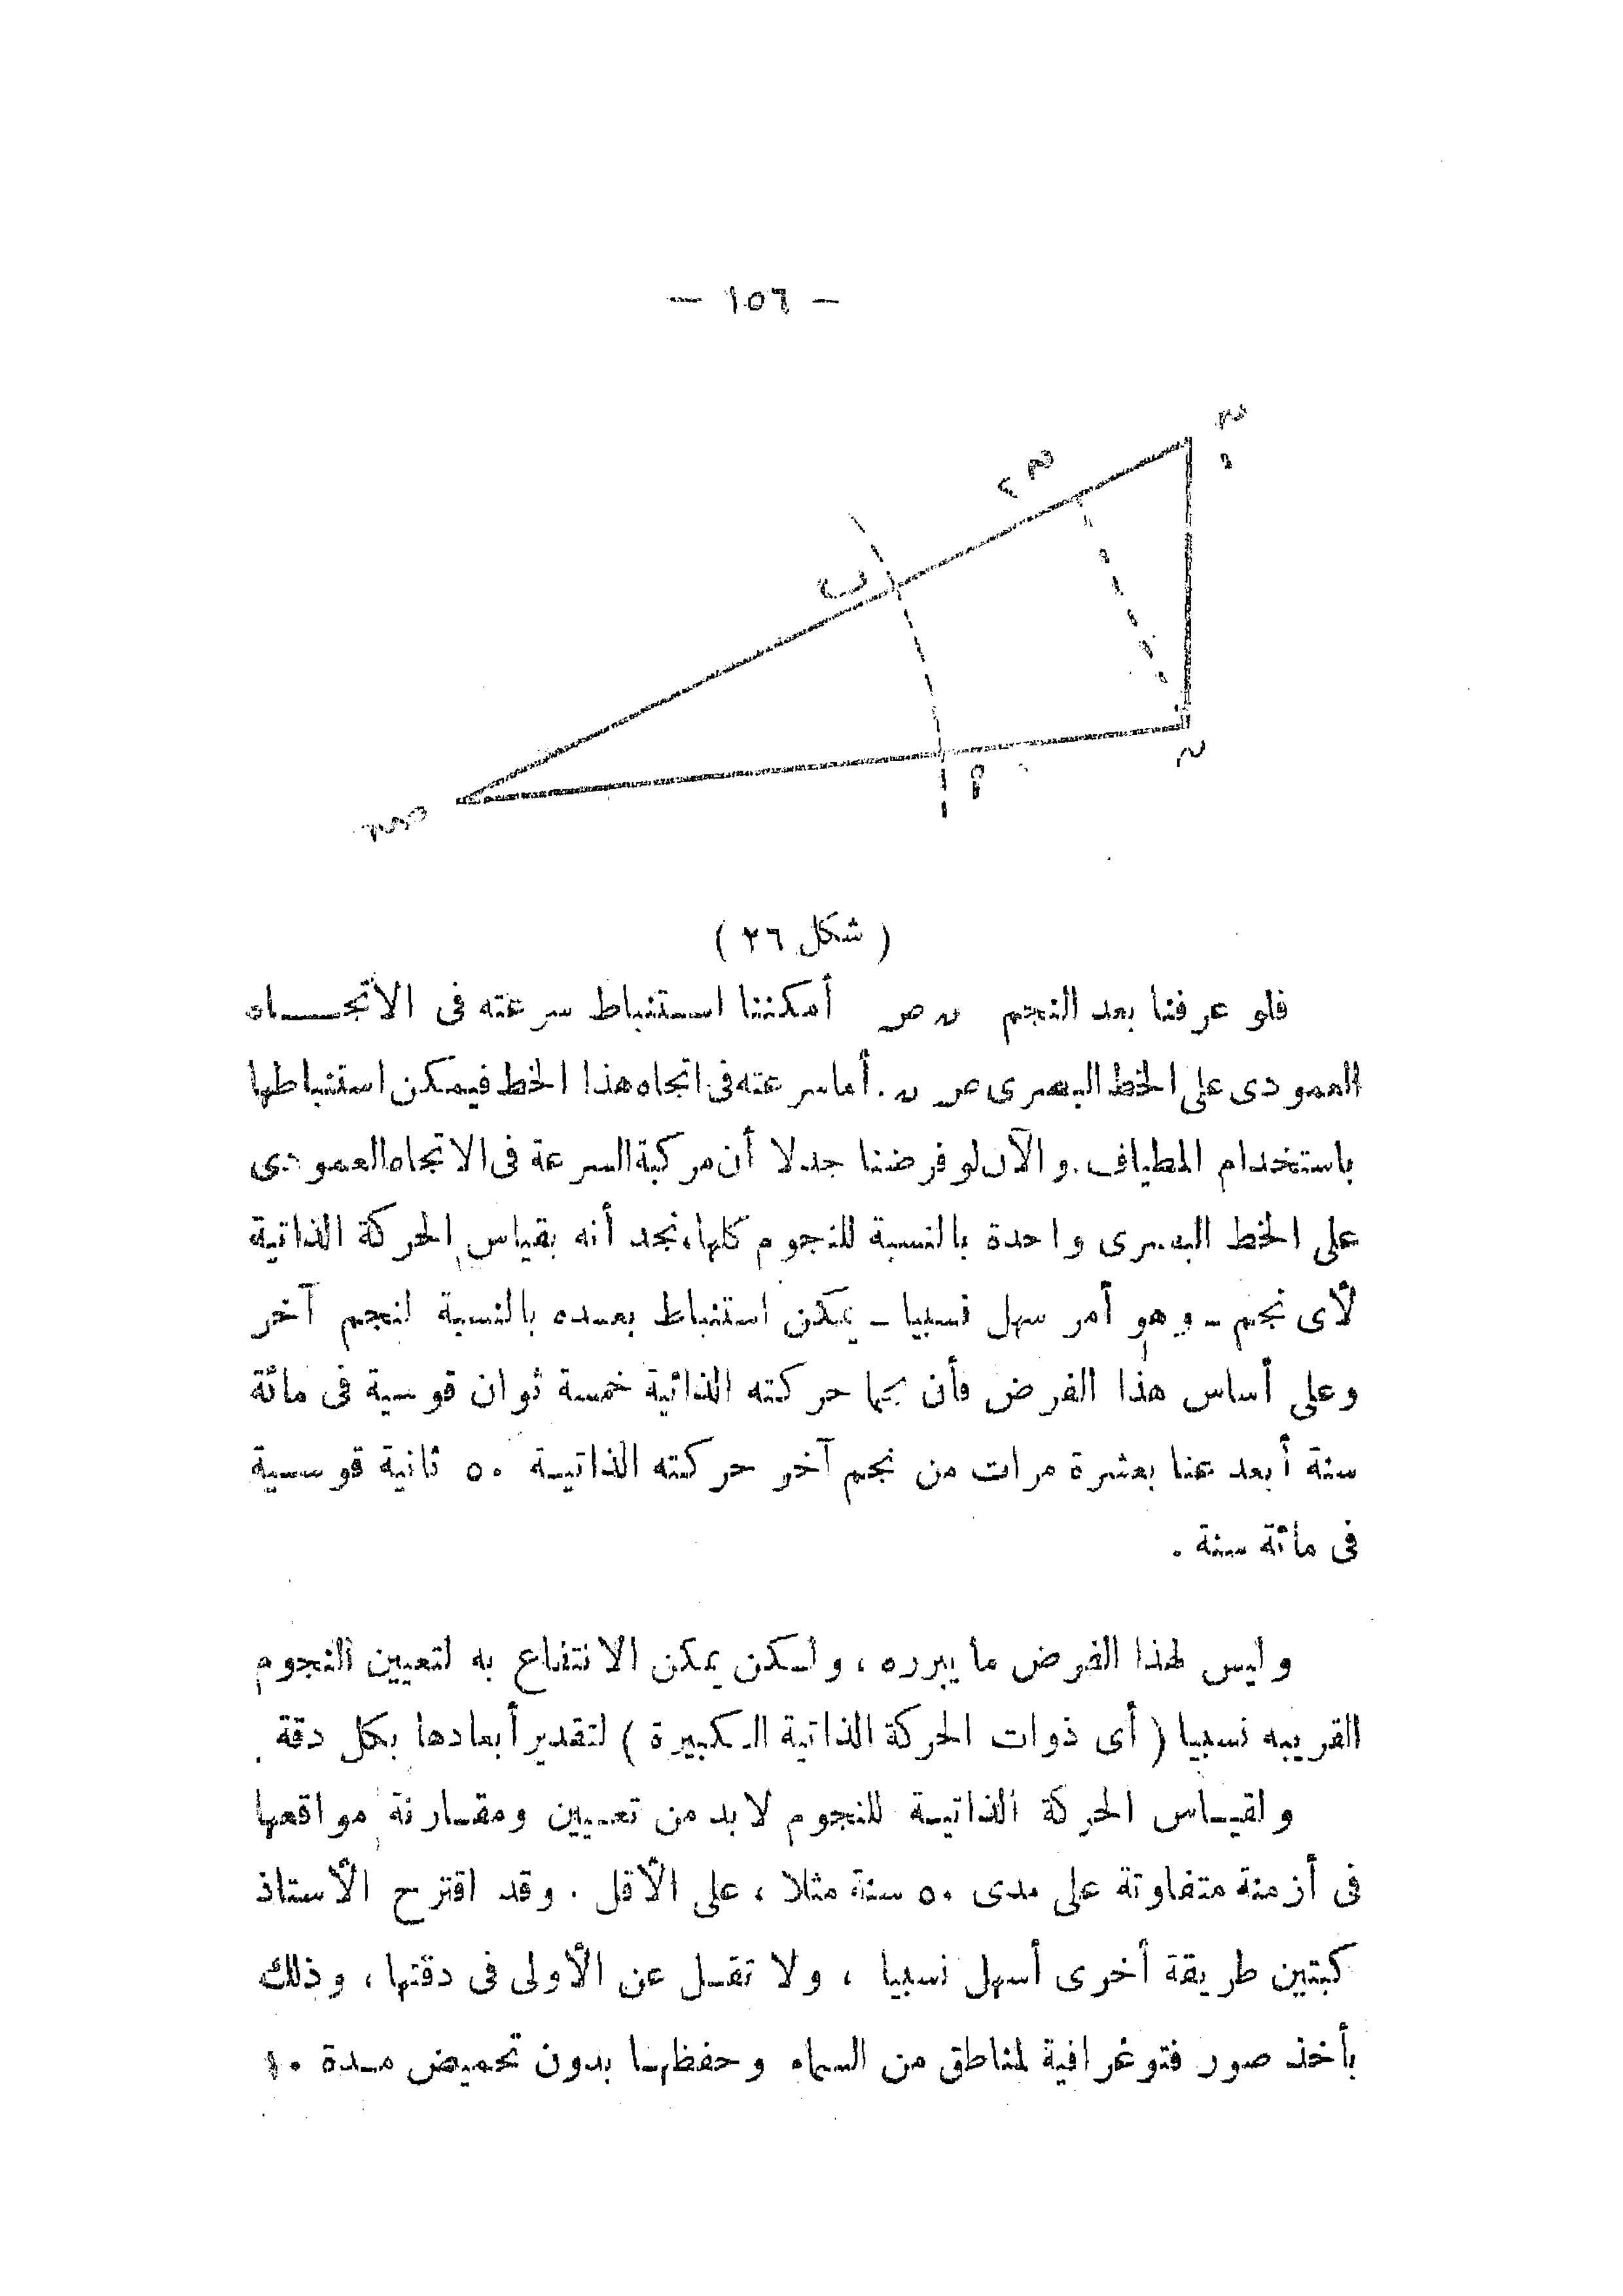 — ١٥٦ —
ب
م
ص
(شكل ٢٦)
فلو عرفنا بعد النجم ن ص أمكننا استنباط سرعته فى الاتجاه
العمودى على الخط البصرى ص ن . أما سرعته فى اتجاه هذا الخط فيمكن استنباطها
باستخدام المطياف . والآن لو فرضنا جدلا أن مركبة السرعة فى الاتجاه العمودى
على الخط البصرى واحدة بالنسبة للنجوم كلها ، نجد أنه بقياس الحركة الذاتية
لأى نجم - وهو أمر سهل نسبيا - يمكن استنباط بعده بالنسبة لنجم آخر
وعلى أساس هذا الفرض فأن نجما حركته الذاتية خمسة ثوان قوسية فى مائة
سنة أبعد عنا بعشرة مرات من نجم آخر حركته الذاتية ٥٠ ثانية قوسية
فى مائة سنة .
وليس لهذا الفرض ما يبرره ، ولكن يمكن الانتفاع به لتعيين النجوم
القريبه نسبيا ( أى ذوات الحركة الذاتية الكبيرة ) لتقدير أبعادها بكل دقة .
ولقياس الحركة الذاتية للنجوم لابد من تعيين ومقارنة مواقعها
فى أزمنة متفاوتة على مدى ٥٠ سنة مثلا ، على الأقل . وقد اقترح الأستاذ
كبتين طريقة أخرى أسهل نسبيا ، ولا تقل عن الأولى فى دقتها ، وذلك
بأخذ صور فتوغرافية لمناطق من السماء وحفظها بدون تحميض مدة ١٠